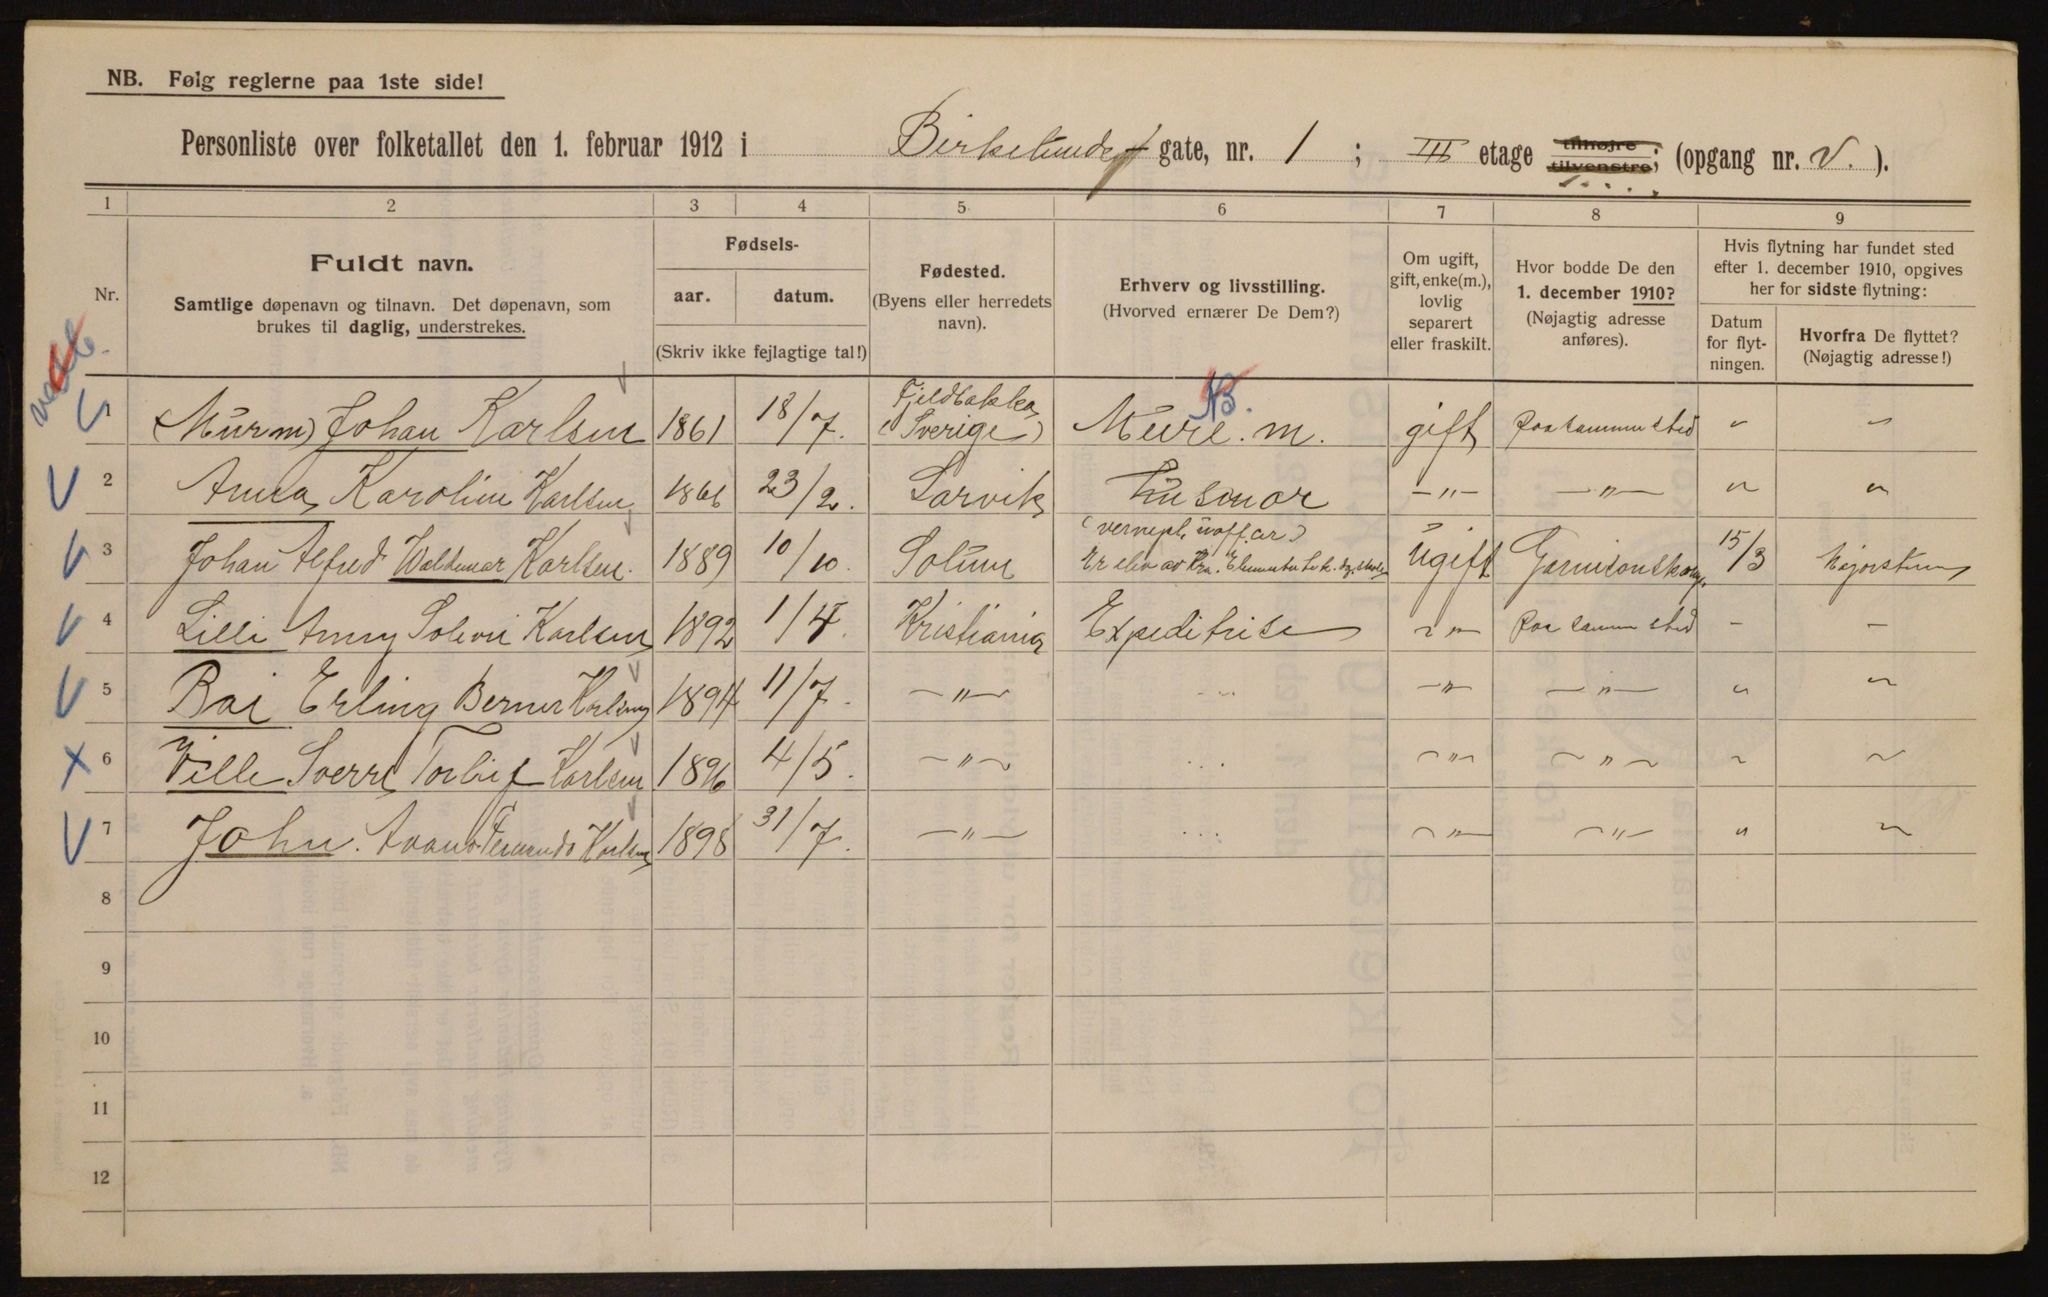 NB. Følg reglerne paa 1ste side!
Personliste over folketallet den 1. februar 1912 i Birkelunden gate, nr. 1 ; III etage tilhøjre tilvenstre; (opgang nr. V. ).
1 2 3 4 5 6 7 8 9
Nr.
Fuldt navn.
Samtlige døpenavn og tilnavn. Det døpenavn, som
brukes til daglig, understrekes.
Fødsels-
aar. datum.
(Skriv ikke fejlagtige tal!)
Fødested.
(Byens eller herredets
navn).
Erhverv og livsstilling.
(Hvorved ernærer De Dem?)
Om ugift,
gift, enke(m.),
lovlig
separert
eller fraskilt.
Hvor bodde De den
1. december 1910?
(Nøjagtig adresse
anføres).
Hvis flytning har fundet sted
efter 1. december 1910, opgives
her for sidste flytning:
Datum
for flyt-
ningen.
Hvorfra De flyttet?
(Nøjagtig adresse!)
NB.
1 (Murm) Johan Karlsen 1861 18/7. Fjeldbakka (Sverige) Mure.m. gift paa samme sted " "
2 Anna Karoline Karlsen 1866 23/2. Larvik Husmor —"— —"— " "
3 Johan Alfred Waldemar Karlsen. 1889 10/10. Solum (vernepl. uoff.ar) Er elev av Kra. ugift Garnisonskomp. 15/3 Majorstuen
4 Lilli Anny Solvei Karlsen 1892 1/4. Kristiania Expeditrise —"— paa samme sted - -
5 Rai Erling Berner Karlsen 1894 11/7. —"— ... —"— —"— " "
6 Ville Sverre Torleif Karlsen 1896 4/5. —"— ... —"— —"— " "
7 John. Fernando Karlsen 1898 31/7. —"— ... —"— —"— " "
8
9
10
11
12